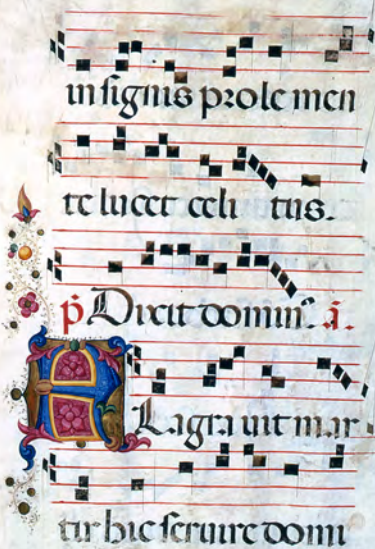 in signis prole men
te lucet celi tus.
p̄ Dixit domin᾽. ā.
Flagra uit mar
tir hic seruire domi